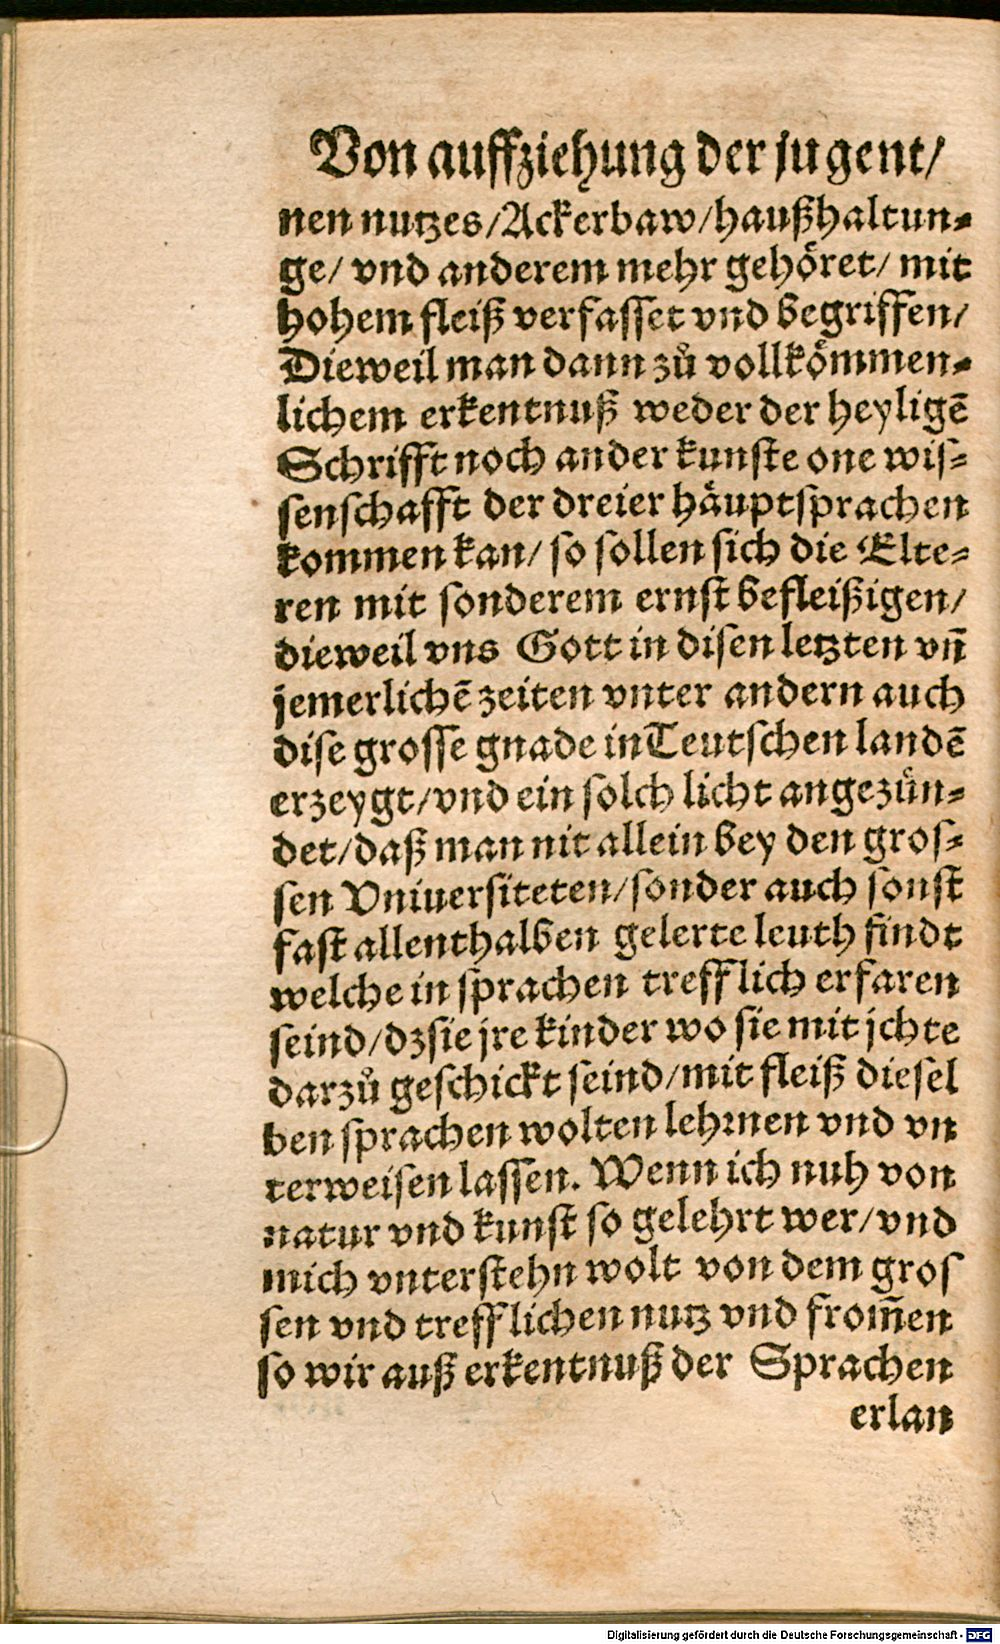 Von auffziehung der jugent/
nen nutzes/Ackerbaw/haußhaltun⸗
ge/ vnd anderem mehr gehoͤret/ mit
hohem fleiß verfasset vnd begriffen/
Dieweil man dann zuͦ vollkoͤmmen⸗
lichem erkentnuß weder der heyligẽ
Schrifft noch ander kunste one wis⸗
senschafft der dreier haͤuptsprachen
kommen kan/ so sollen sich die Elte⸗
ren mit sonderem ernst befleißigen/
dieweil vns Gott in disen letzten vñ
jemerlichẽ zeiten vnter andern auch
dise grosse gnade in Teutschen landẽ
erzeygt/vnd ein solch licht angezuͤn⸗
det/daß man nit allein bey den gros⸗
sen Vniuersiteten/sonder auch sonst
fast allenthalben gelerte leuth findt
welche in sprachen trefflich erfaren
seind/dz sie jre kinder wo sie mit jchte
darzuͦ geschickt seind/mit fleiß diesel
ben sprachen wolten lehrnen vnd vn
terweisen lassen. Wenn ich nuh von
natur vnd kunst so gelehrt wer/vnd
mich vnterstehn wolt von dem gros
sen vnd trefflichen nutz vnd from̃en
so wir auß erkentnuß der Sprachen
erlan
Digitalisierung gefördert durch die Deutsche Forschungsgemeinschaft - DFG